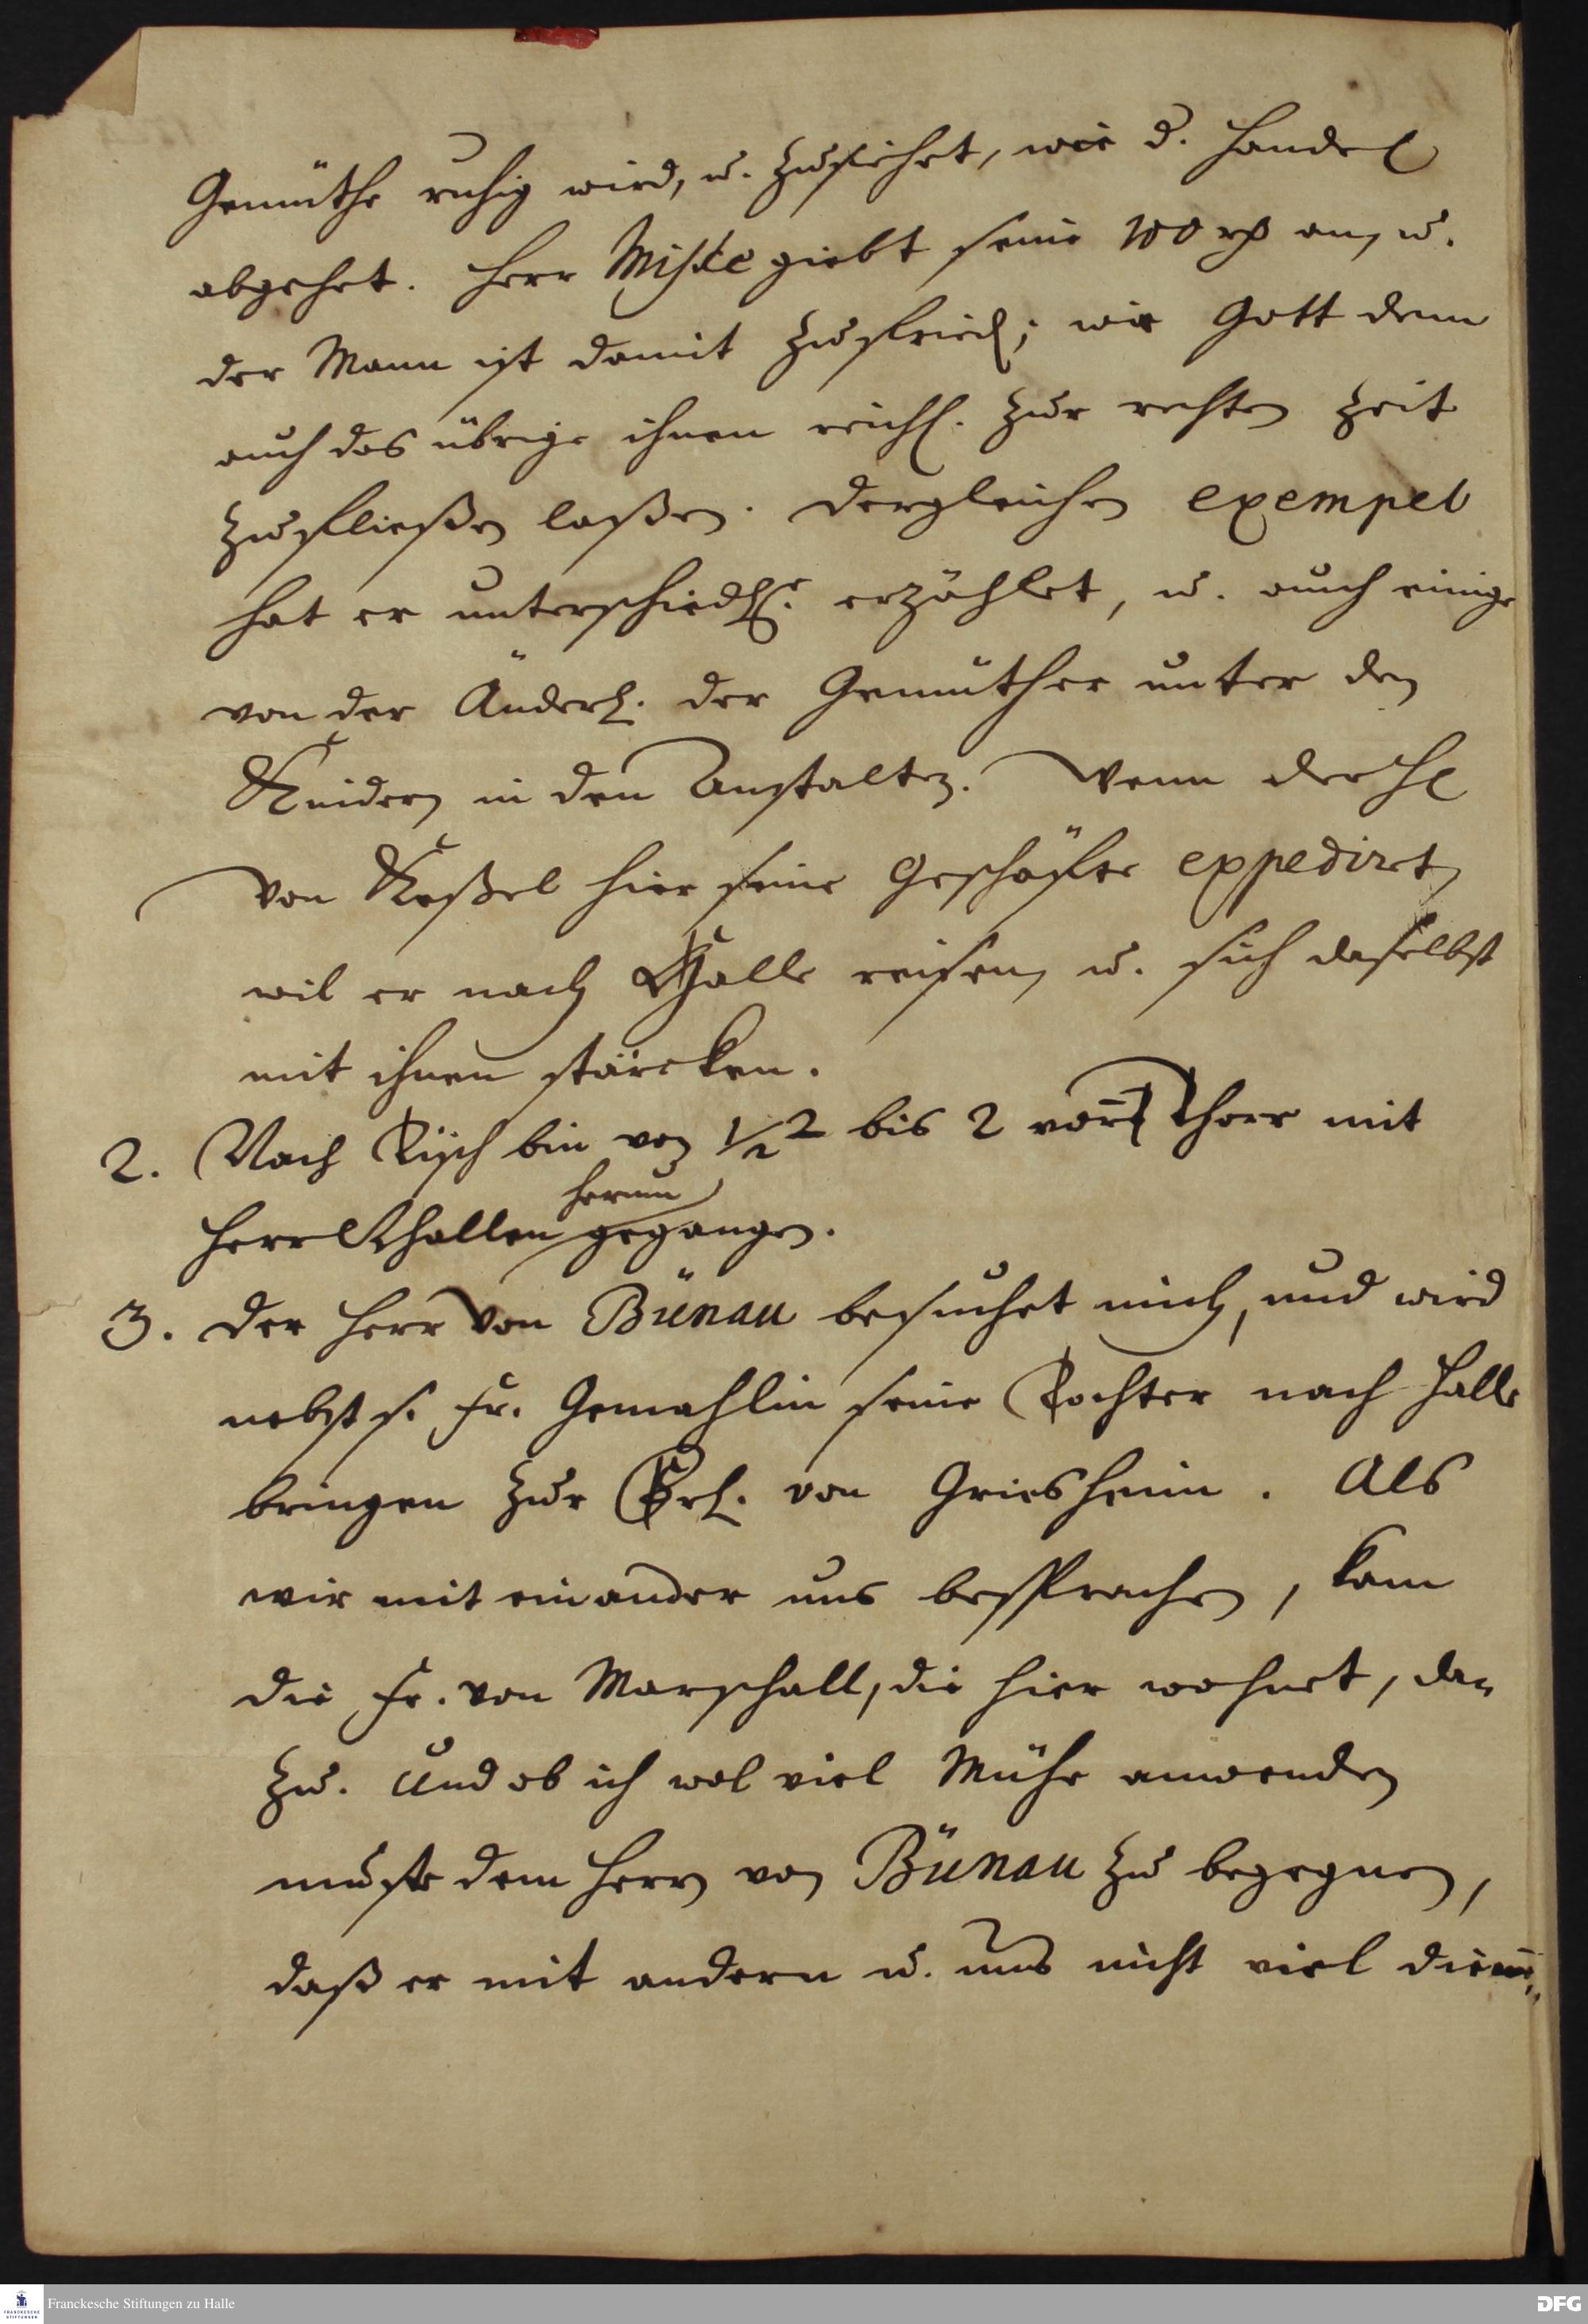 Gemüthe ruhig wird, u. zusiehet, wie d. Handel
abgehet. Herr Mischke giebt seine 100 rh an, u.
der Mann ist damit zufried; wie Gott denn
auch das übrige ihnen reichl. zur rechten Zeit
zufließen laßen. Dergleichen exempel
hat er unterschiedl. erzählet, u. auch einige
von der Änder. der Gemüther unter den
Kindern in den Anstalten. Wenn der H
von Keßel hier seine Geschäfte expediret,
wil er nach Halle reisen, u. sich daselbst
mit ihnen stärcken.
2. Nach Tisch bin von 1/2 2 bis 2 vors Thor mit
herum
Herr Challen gegangen.
3. Der Herr von Bünau besuchet mich, und wird
nebst s. Fr. Gemahlin seine Tochter nach Halle
bringen zur Frl. von Griesheim. Als
wir mit einander uns besprachen, kam
die Fr. von Marschall, die hier wohnet, da-
zu. Und ob ich wol viel Mühe anwenden
muste dem Herrn von Bünau zu begegnen,
daß er mit andern u. uns nicht viel
Franckesche Stiftungen zu Halle
DFG